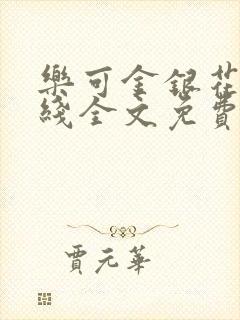 樂可金銀花
綫全文免費
賈元華